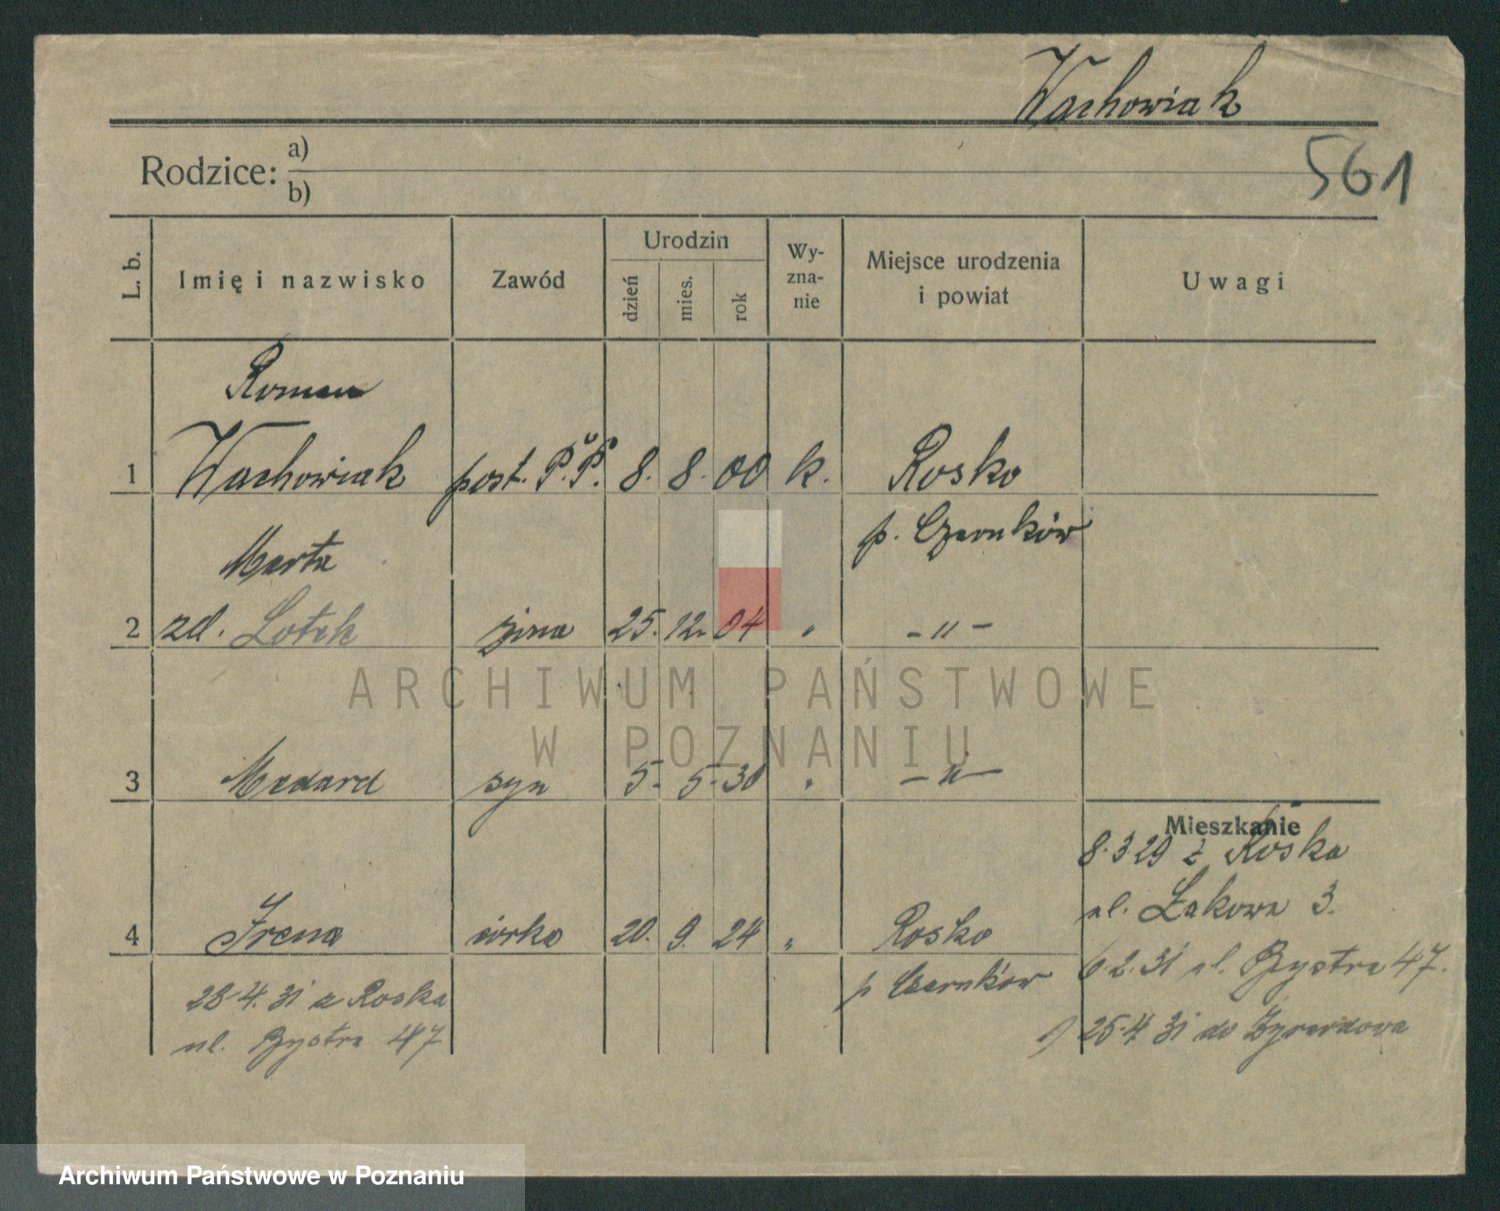 Wachowiak
561
Rodzice: a)
b)
L. b. Imię i nazwisko Zawód Urodzin dzień mies. rok Wy-zna-nie Miejsce urodzenia i powiat Uwagi
Roman
1 Wachowiak post. P.P. 8. 8. 00 k. Rosko
p. Czarnków
Marta
2 zd. Lotek żona 25. 12. 04 " -"-
3 Medard syn 5. 5. 30 " -"-
Mieszkanie
8.3 29 z Roska
ul. Łąkowa 3.
4 Irena córka 20. 9. 24 " Rosko
p Czarnków
6.2.31 ul. Bystra 47.
28.4.31 z Roska
ul. Bystra 47
25.4 31 do Żyrardowa
ARCHIWUM PAŃSTWOWE
W POZNANIU
Archiwum Państwowe w Poznaniu